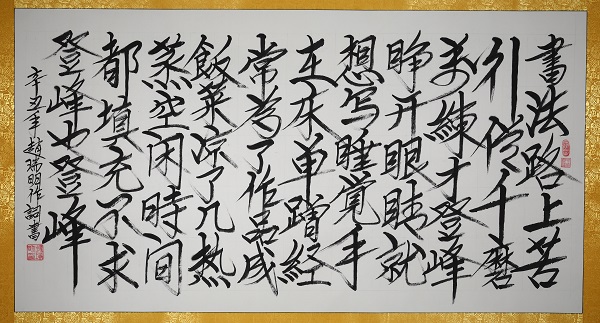 書法路上苦
行修千磨
万練才登峰
睁开眼睛就
想写睡覺手
在床单蹭經
常為了作品成
飯菜凉了几热
蒸空闲時间
都填充不求
登峰也登峰
辛丑年趙瑞明作詞書